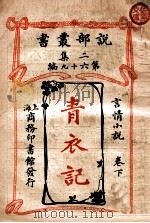 說部叢書
二集
第六十九編
言情小說
卷下
青衣記
上海
商務印書館發行